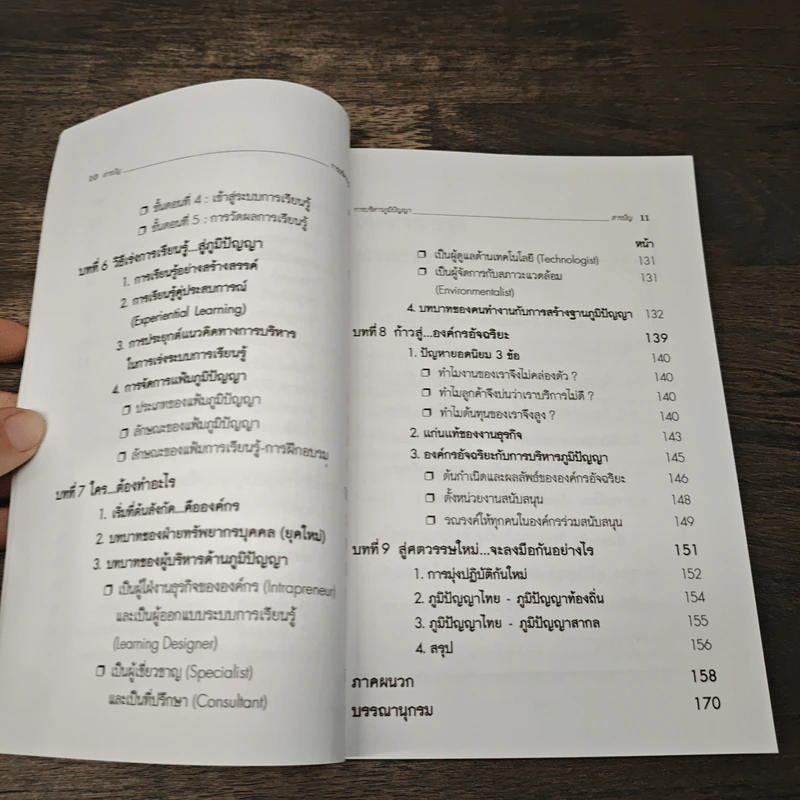 10 สารบัญ
❐ ขั้นตอนที่ 4 : เข้าสู่ระบบการเรียนรู้
❐ ขั้นตอนที่ 5 : การวัดผลการเรียนรู้
บทที่ 6 วิธีเร่งการเรียนรู้...สู่ภูมิปัญญา
1. การเรียนรู้อย่างสร้างสรรค์
2. การเรียนรู้คู่ประสบการณ์
(Experiential Learning)
3. การประยุกต์แนวคิดทางการบริหาร
ในการเร่งระบบการเรียนรู้
4. การจัดการแฟ้มภูมิปัญญา
❐ ประเภทของแฟ้มภูมิปัญญา
❐ ลักษณะของแฟ้มภูมิปัญญา
❐ ลักษณะของแฟ้มการเรียนรู้-การฝึกอบรม
บทที่ 7 ใคร...ต้องทำอะไร
1. เริ่มที่ต้นสังกัด...คือองค์กร
2. บทบาทของฝ่ายทรัพยากรบุคคล (ยุคใหม่)
3. บทบาทของผู้บริหารด้านภูมิปัญญา
❐ เป็นผู้ใฝ่งานธุรกิจขององค์กร (Intrapreneur)
และเป็นผู้ออกแบบระบบการเรียนรู้
(Learning Designer)
❐ เป็นผู้เชี่ยวชาญ (Specialist)
และเป็นที่ปรึกษา (Consultant)
การบริหารภูมิปัญญา สารบัญ 11
หน้า
❐ เป็นผู้ดูแลด้านเทคโนโลยี (Technologist) 131
❐ เป็นผู้จัดการกับสภาวะแวดล้อม 131
(Environmentalist)
4. บทบาทของคนทำงานกับการสร้างฐานภูมิปัญญา 132
บทที่ 8 ก้าวสู่...องค์กรอัจฉริยะ 139
1. ปัญหายอดนิยม 3 ข้อ 140
❐ ทำไมงานของเราจึงไม่คล่องตัว ? 140
❐ ทำไมลูกค้าจึงบ่นว่าเราบริการไม่ดี ? 140
❐ ทำไมต้นทุนของเราจึงสูง ? 140
2. แก่นแท้ของงานธุรกิจ 143
3. องค์กรอัจฉริยะกับการบริหารภูมิปัญญา 145
❐ ต้นกำเนิดและผลลัพธ์ขององค์กรอัจฉริยะ 146
❐ ตั้งหน่วยงานสนับสนุน 148
❐ รณรงค์ให้ทุกคนในองค์กรร่วมสนับสนุน 149
บทที่ 9 สู่ศตวรรษใหม่...จะลงมือกันอย่างไร 151
1. การมุ่งปฏิบัติกันใหม่ 152
2. ภูมิปัญญาไทย - ภูมิปัญญาท้องถิ่น 154
3. ภูมิปัญญาไทย - ภูมิปัญญาสากล 155
4. สรุป 156
ภาคผนวก 158
บรรณานุกรม 170